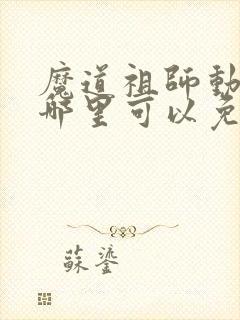 魔道祖師動
哪里可以免
蘇鎏